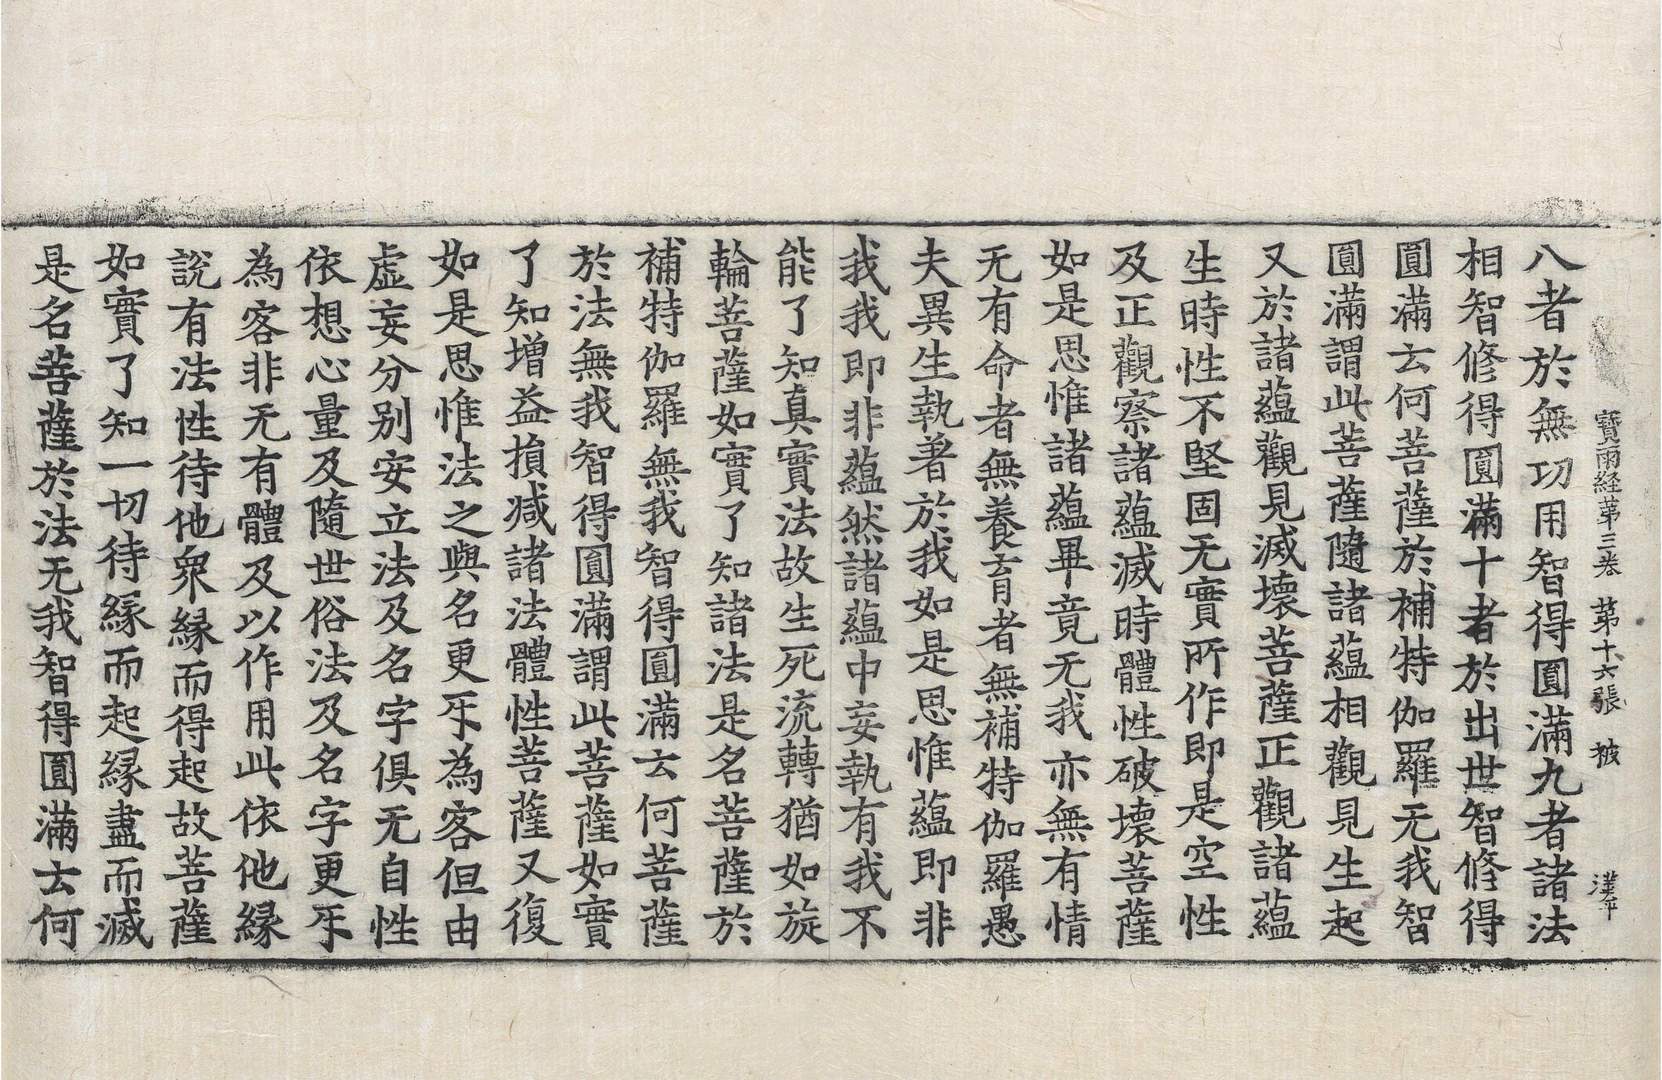 寶雨経苐三卷 第十六張 被 漢平
八者於無功用智得圓滿九者諸法
相智修得圓滿十者於出世智修得
圓滿云何菩薩於補特伽羅无我智
圓滿謂此菩薩隨諸蘊相觀見生起
又於諸蘊觀見滅壞菩薩正觀諸蘊
生時性不堅固无實所作即是空性
及正觀察諸蘊滅時體性破壞菩薩
如是思惟諸蘊畢竟无我亦無有情
无有命者無養育者無補特伽羅愚
夫異生執著於我如是思惟蘊即非
我我即非蘊然諸蘊中妄執有我不
能了知真實法故生死流轉猶如旋
輪菩薩如實了知諸法是名菩薩於
補特伽羅無我智得圓滿云何菩薩
於法無我智得圓滿謂此菩薩如實
了知增益損減諸法體性菩薩又復
如是思惟法之與名更㸦為客但由
虛妄分別安立法及名字俱无自性
依想心量及隨世俗法及名字更㸦
為客非无有體及以作用此依他縁
說有法性待他衆縁而得起故菩薩
如實了知一切待縁而起縁盡而滅
是名菩薩於法无我智得圓滿云何